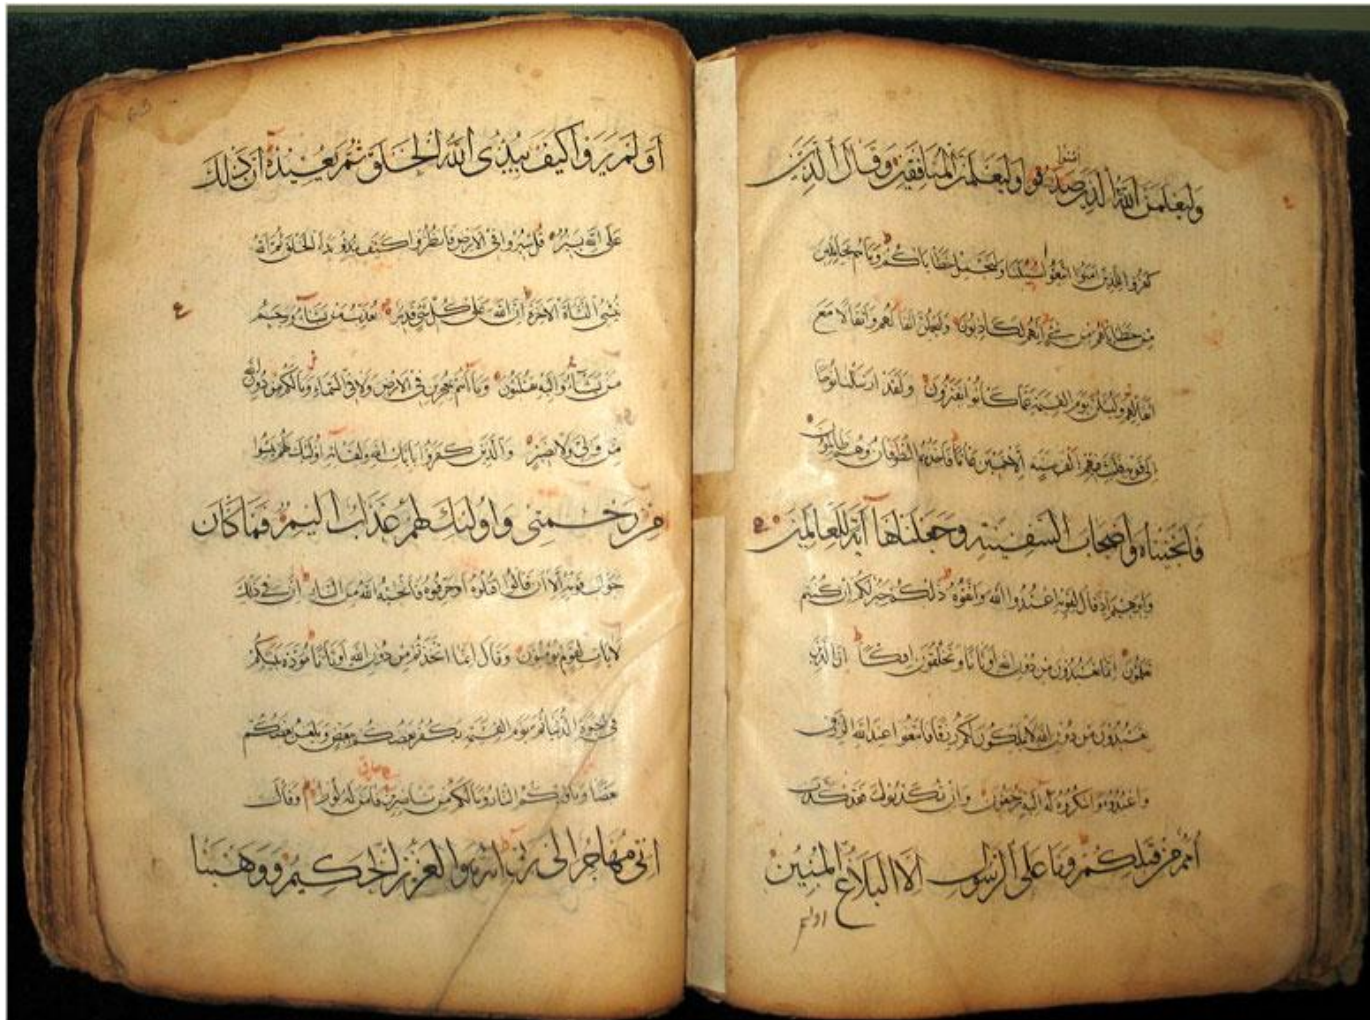 امنوا
وليعلمن الله الذين صدقوا وليعلمن المنافقين وقال الذين
كفروا للذين امنوا اتبعوا سبيلنا ولنحمل خطاياكم وما هم بحاملين
من خطاياهم من شئ انهم لكاذبون وليحملن اثقالهم واثقالا مع
اثقالهم وليسئلن يوم القيمة عما كانوا يفترون ولقد ارسلنا نوحا
الى قومه فلبث فيهم الف سنة الا خمسين عاما فاخذهم الطوفان وهم ظالمون
فانجيناه واصحاب السفينة وجعلناها آية للعالمين
وابرهيم اذ قال لقومه اعبدوا الله واتقوه ذلكم خير لكم ان كنتم
تعلمون انما تعبدون من دون الله اوثانا وتخلقون افكا ان الذين
تعبدون من دون الله لا يملكون لكم رزقا فابتغوا عند الله الرزق
واعبدوه واشكروا له اليه ترجعون وان تكذبوا فقد كذب
امم من قبلكم وما على الرسول الا البلاغ المبين
اولم
اولم يروا كيف يبدئ الله الخلق ثم يعيده ان ذلك
على الله يسير قل سيروا في الارض فانظروا كيف بدأ الخلق ثم الله
ينشئ النشأة الاخرة ان الله على كل شئ قدير يعذب من يشاء ويرحم
من يشاء واليه تقلبون وما انتم بمعجزين في الارض ولا في السماء وما لكم من دون الله
من ولي ولا نصير والذين كفروا بايات الله ولقائه اولئك يئسوا
من رحمتي واولئك لهم عذاب اليم فما كان
جواب قومه الا ان قالوا اقتلوه او حرقوه فانجيه الله من النار ان في ذلك
لايات لقوم يؤمنون وقال انما اتخذتم من دون الله اوثانا مودة بينكم
في الحيوة الدنيا ثم يوم القيمة يكفر بعضكم ببعض ويلعن بعضكم
بعضا وماويكم النار وما لكم من ناصرين فامن له لوط وقال
اني مهاجر الى ربي انه هو العزيز الحكيم ووهبنا